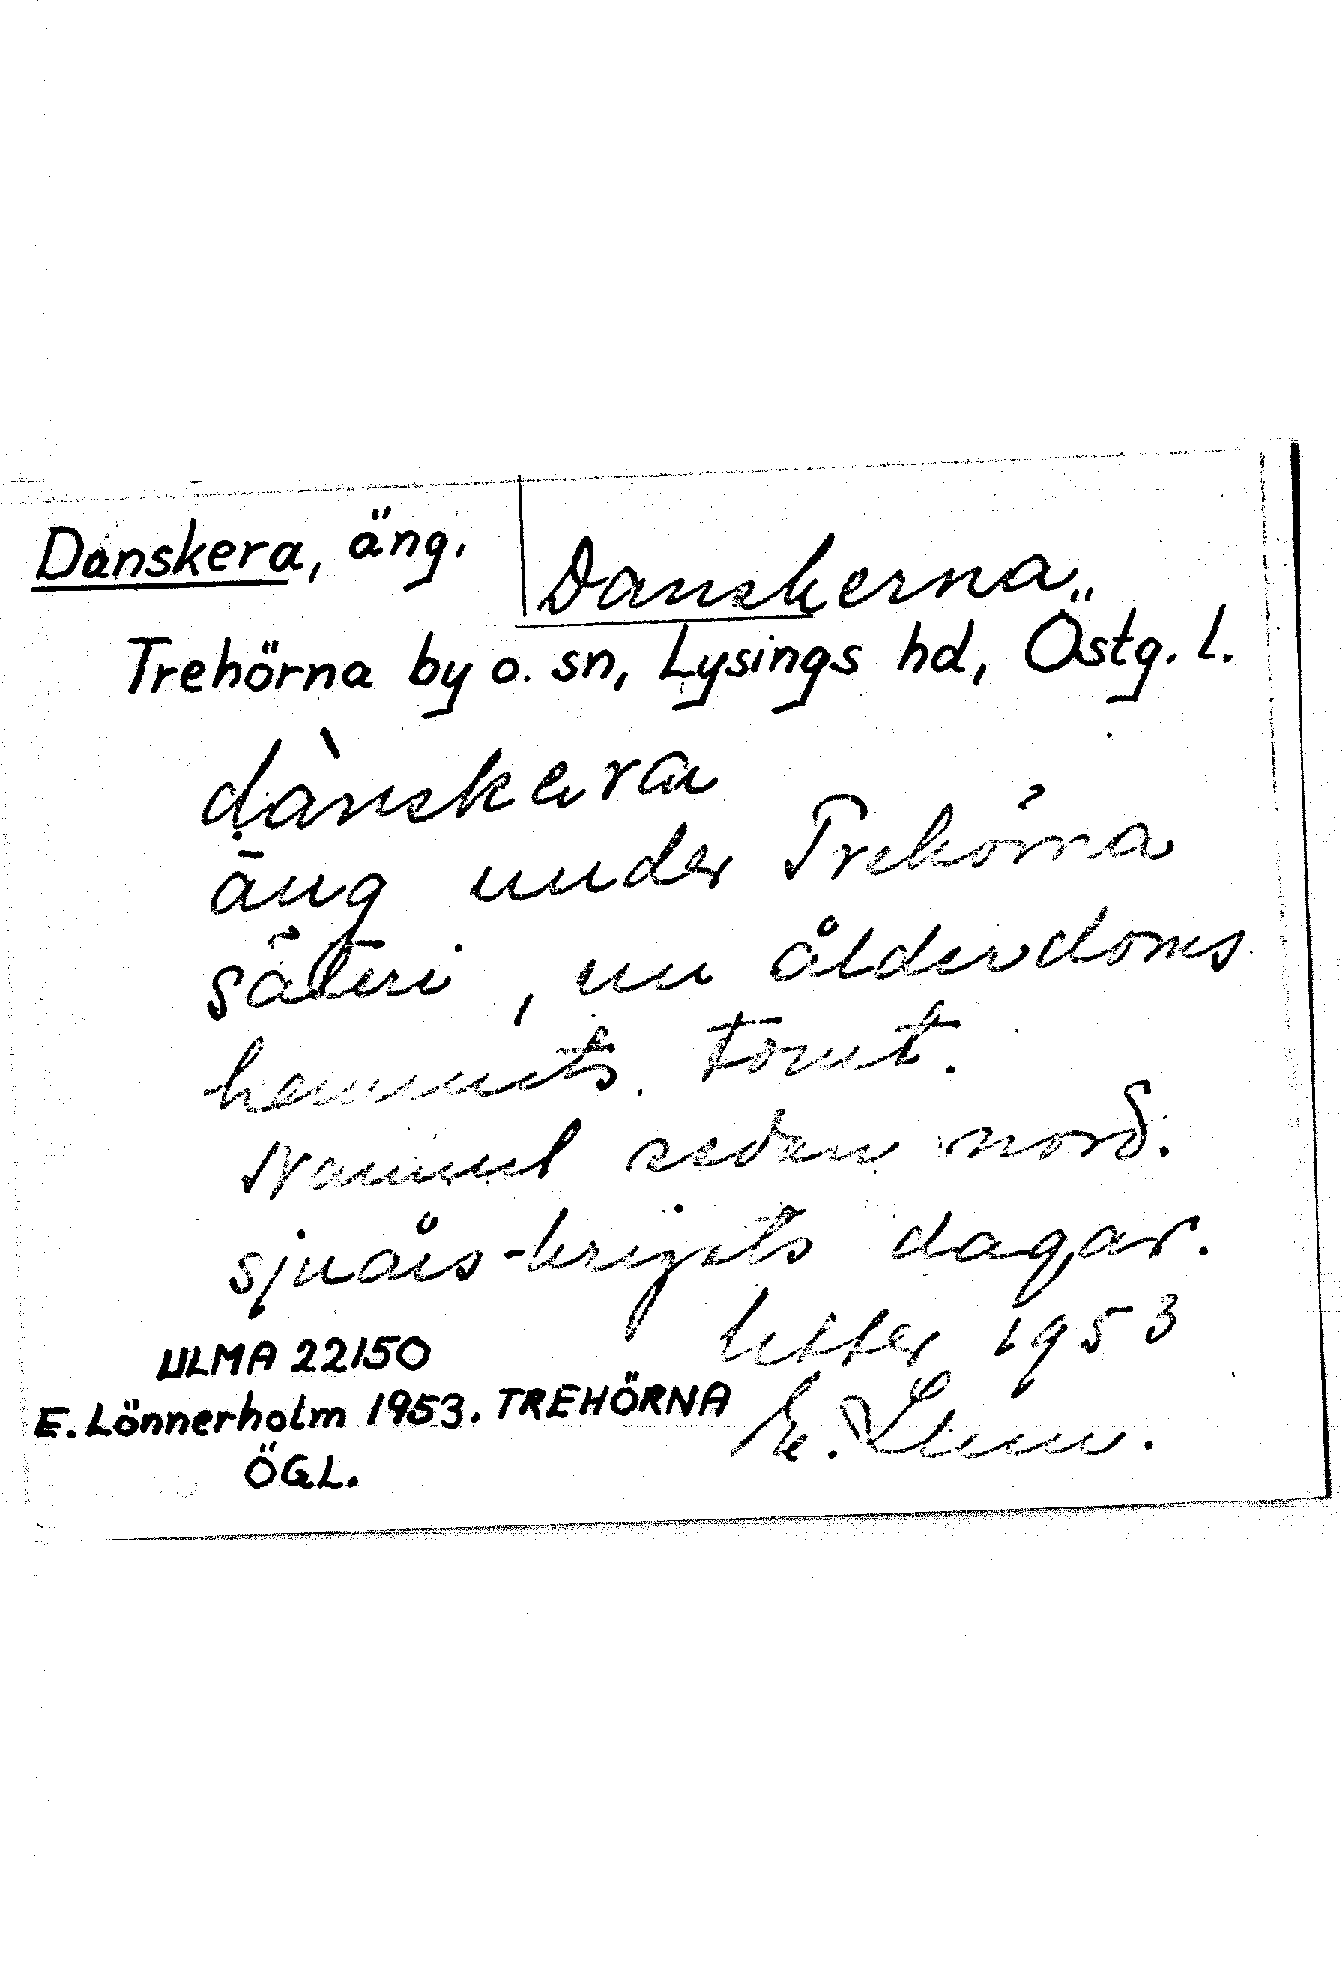 Danskera, äng.
Danskerna
Trehörna by o. sn, Lysings hd, Östg. l.
dànskera
äng under Trehörna
säteri, nu ålderdoms
hemmets. Tomt.
Namnet sedan nord.
sjuårs-krigets dagar.
1953
ULMA 22150
E. Lönnerholm 1953. TREHÖRNA
E.
ÖGL.